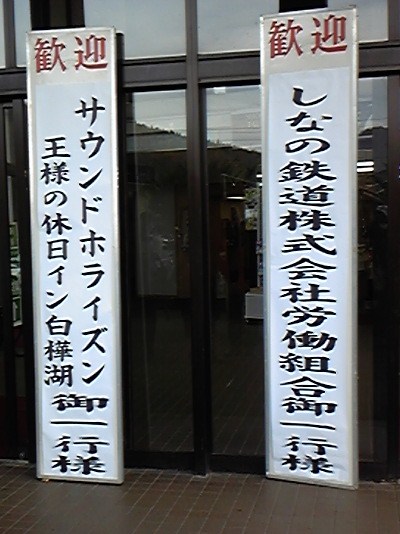 歓迎
しなの鉄道株式会社労働組合御一行様
歓迎
サウンドホライズン
王様の休日イン白樺湖
御一行様